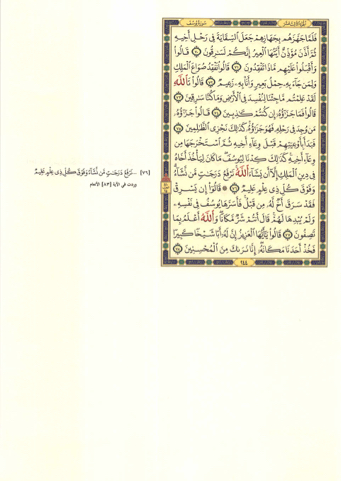 سورة يوسف
فَلَمَّا جَهَّزَهُم بِجَهَازِهِمْ جَعَلَ ٱلسِّقَايَةَ فِى رَحْلِ أَخِيهِ
ثُمَّ أَذَّنَ مُؤَذِّنٌ أَيَّتُهَا ٱلْعِيرُ إِنَّكُمْ لَسَٰرِقُونَ ٧٠ قَالُوا۟
وَأَقْبَلُوا۟ عَلَيْهِم مَّاذَا تَفْقِدُونَ ٧١ قَالُوا۟ نَفْقِدُ صُوَاعَ ٱلْمَلِكِ
وَلِمَن جَآءَ بِهِۦ حِمْلُ بَعِيرٍ وَأَنَا۠ بِهِۦ زَعِيمٌ ٧٢ قَالُوا۟ تَٱللَّهِ
لَقَدْ عَلِمْتُم مَّا جِئْنَا لِنُفْسِدَ فِى ٱلْأَرْضِ وَمَا كُنَّا سَٰرِقِينَ ٧٣
قَالُوا۟ فَمَا جَزَٰٓؤُهُۥٓ إِن كُنتُمْ كَٰذِبِينَ ٧٤ قَالُوا۟ جَزَٰٓؤُهُۥ
مَن وُجِدَ فِى رَحْلِهِۦ فَهُوَ جَزَٰٓؤُهُۥ كَذَٰلِكَ نَجْزِى ٱلظَّٰلِمِينَ ٧٥
فَبَدَأَ بِأَوْعِيَتِهِمْ قَبْلَ وِعَآءِ أَخِيهِ ثُمَّ ٱسْتَخْرَجَهَا مِن
وِعَآءِ أَخِيهِ كَذَٰلِكَ كِدْنَا لِيُوسُفَ مَا كَانَ لِيَأْخُذَ أَخَاهُ
فِى دِينِ ٱلْمَلِكِ إِلَّآ أَن يَشَآءَ ٱللَّهُ نَرْفَعُ دَرَجَٰتٍ مَّن نَّشَآءُ
وَفَوْقَ كُلِّ ذِى عِلْمٍ عَلِيمٌ ٧٦ قَالُوٓا۟ إِن يَسْرِقْ
فَقَدْ سَرَقَ أَخٌ لَّهُۥ مِن قَبْلُ فَأَسَرَّهَا يُوسُفُ فِى نَفْسِهِۦ
وَلَمْ يُبْدِهَا لَهُمْ قَالَ أَنتُمْ شَرٌّ مَّكَانًا وَٱللَّهُ أَعْلَمُ بِمَا
تَصِفُونَ ٧٧ قَالُوا۟ يَٰٓأَيُّهَا ٱلْعَزِيزُ إِنَّ لَهُۥٓ أَبًا شَيْخًا كَبِيرًا
فَخُذْ أَحَدَنَا مَكَانَهُۥٓ إِنَّا نَرَىٰكَ مِنَ ٱلْمُحْسِنِينَ ٧٨
٢٤٤
(٧٦) ...نَرْفَعُ دَرَجَٰتٍ مَّن نَّشَآءُ وَفَوْقَ كُلِّ ذِى عِلْمٍ عَلِيمٌ
وردت في الآية [٨٣] الأنعام